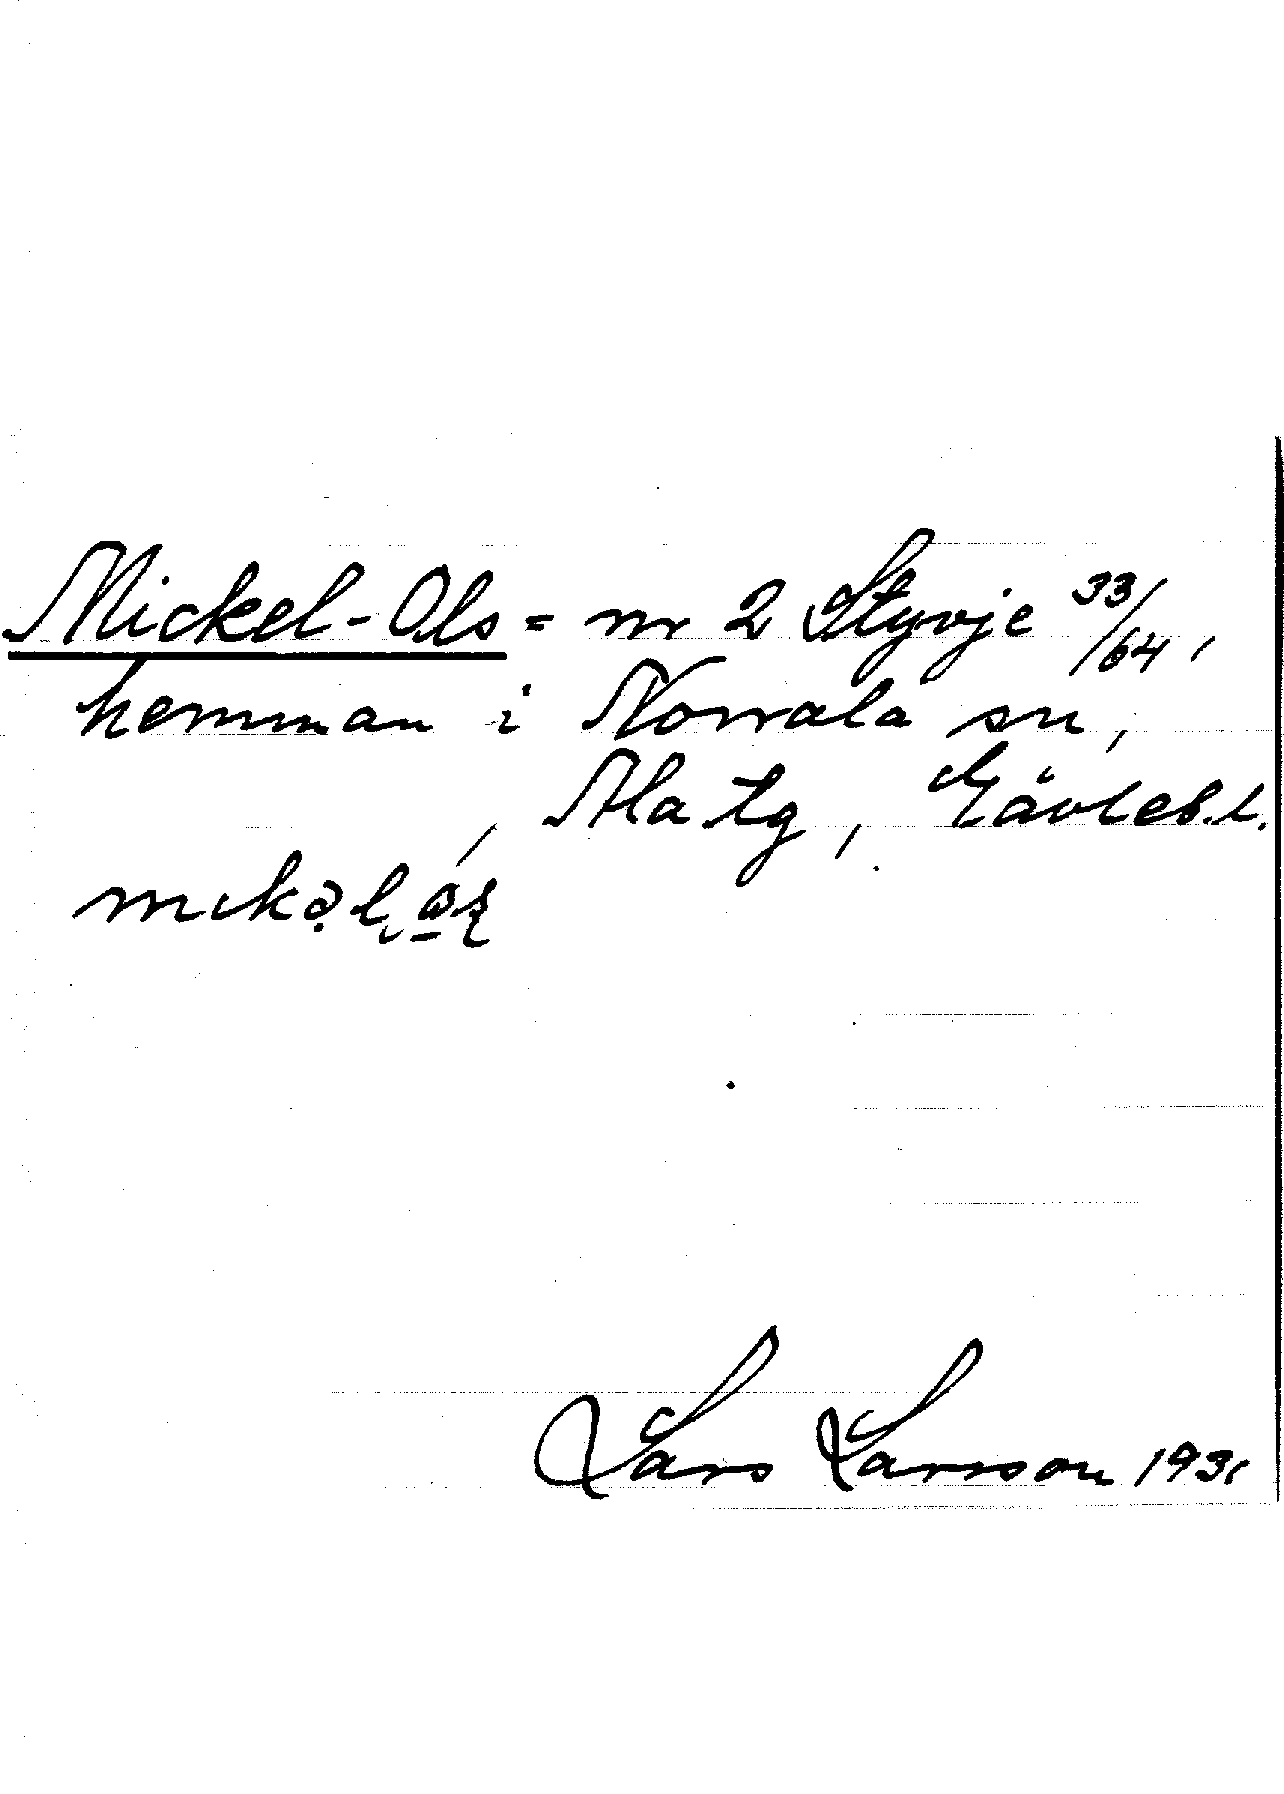 Mickel-Ols = nr 2 Styvje 33/64,
hemman i Norrala sn,
Ala tg, Gävleb.l.
Lars Larsson 1931